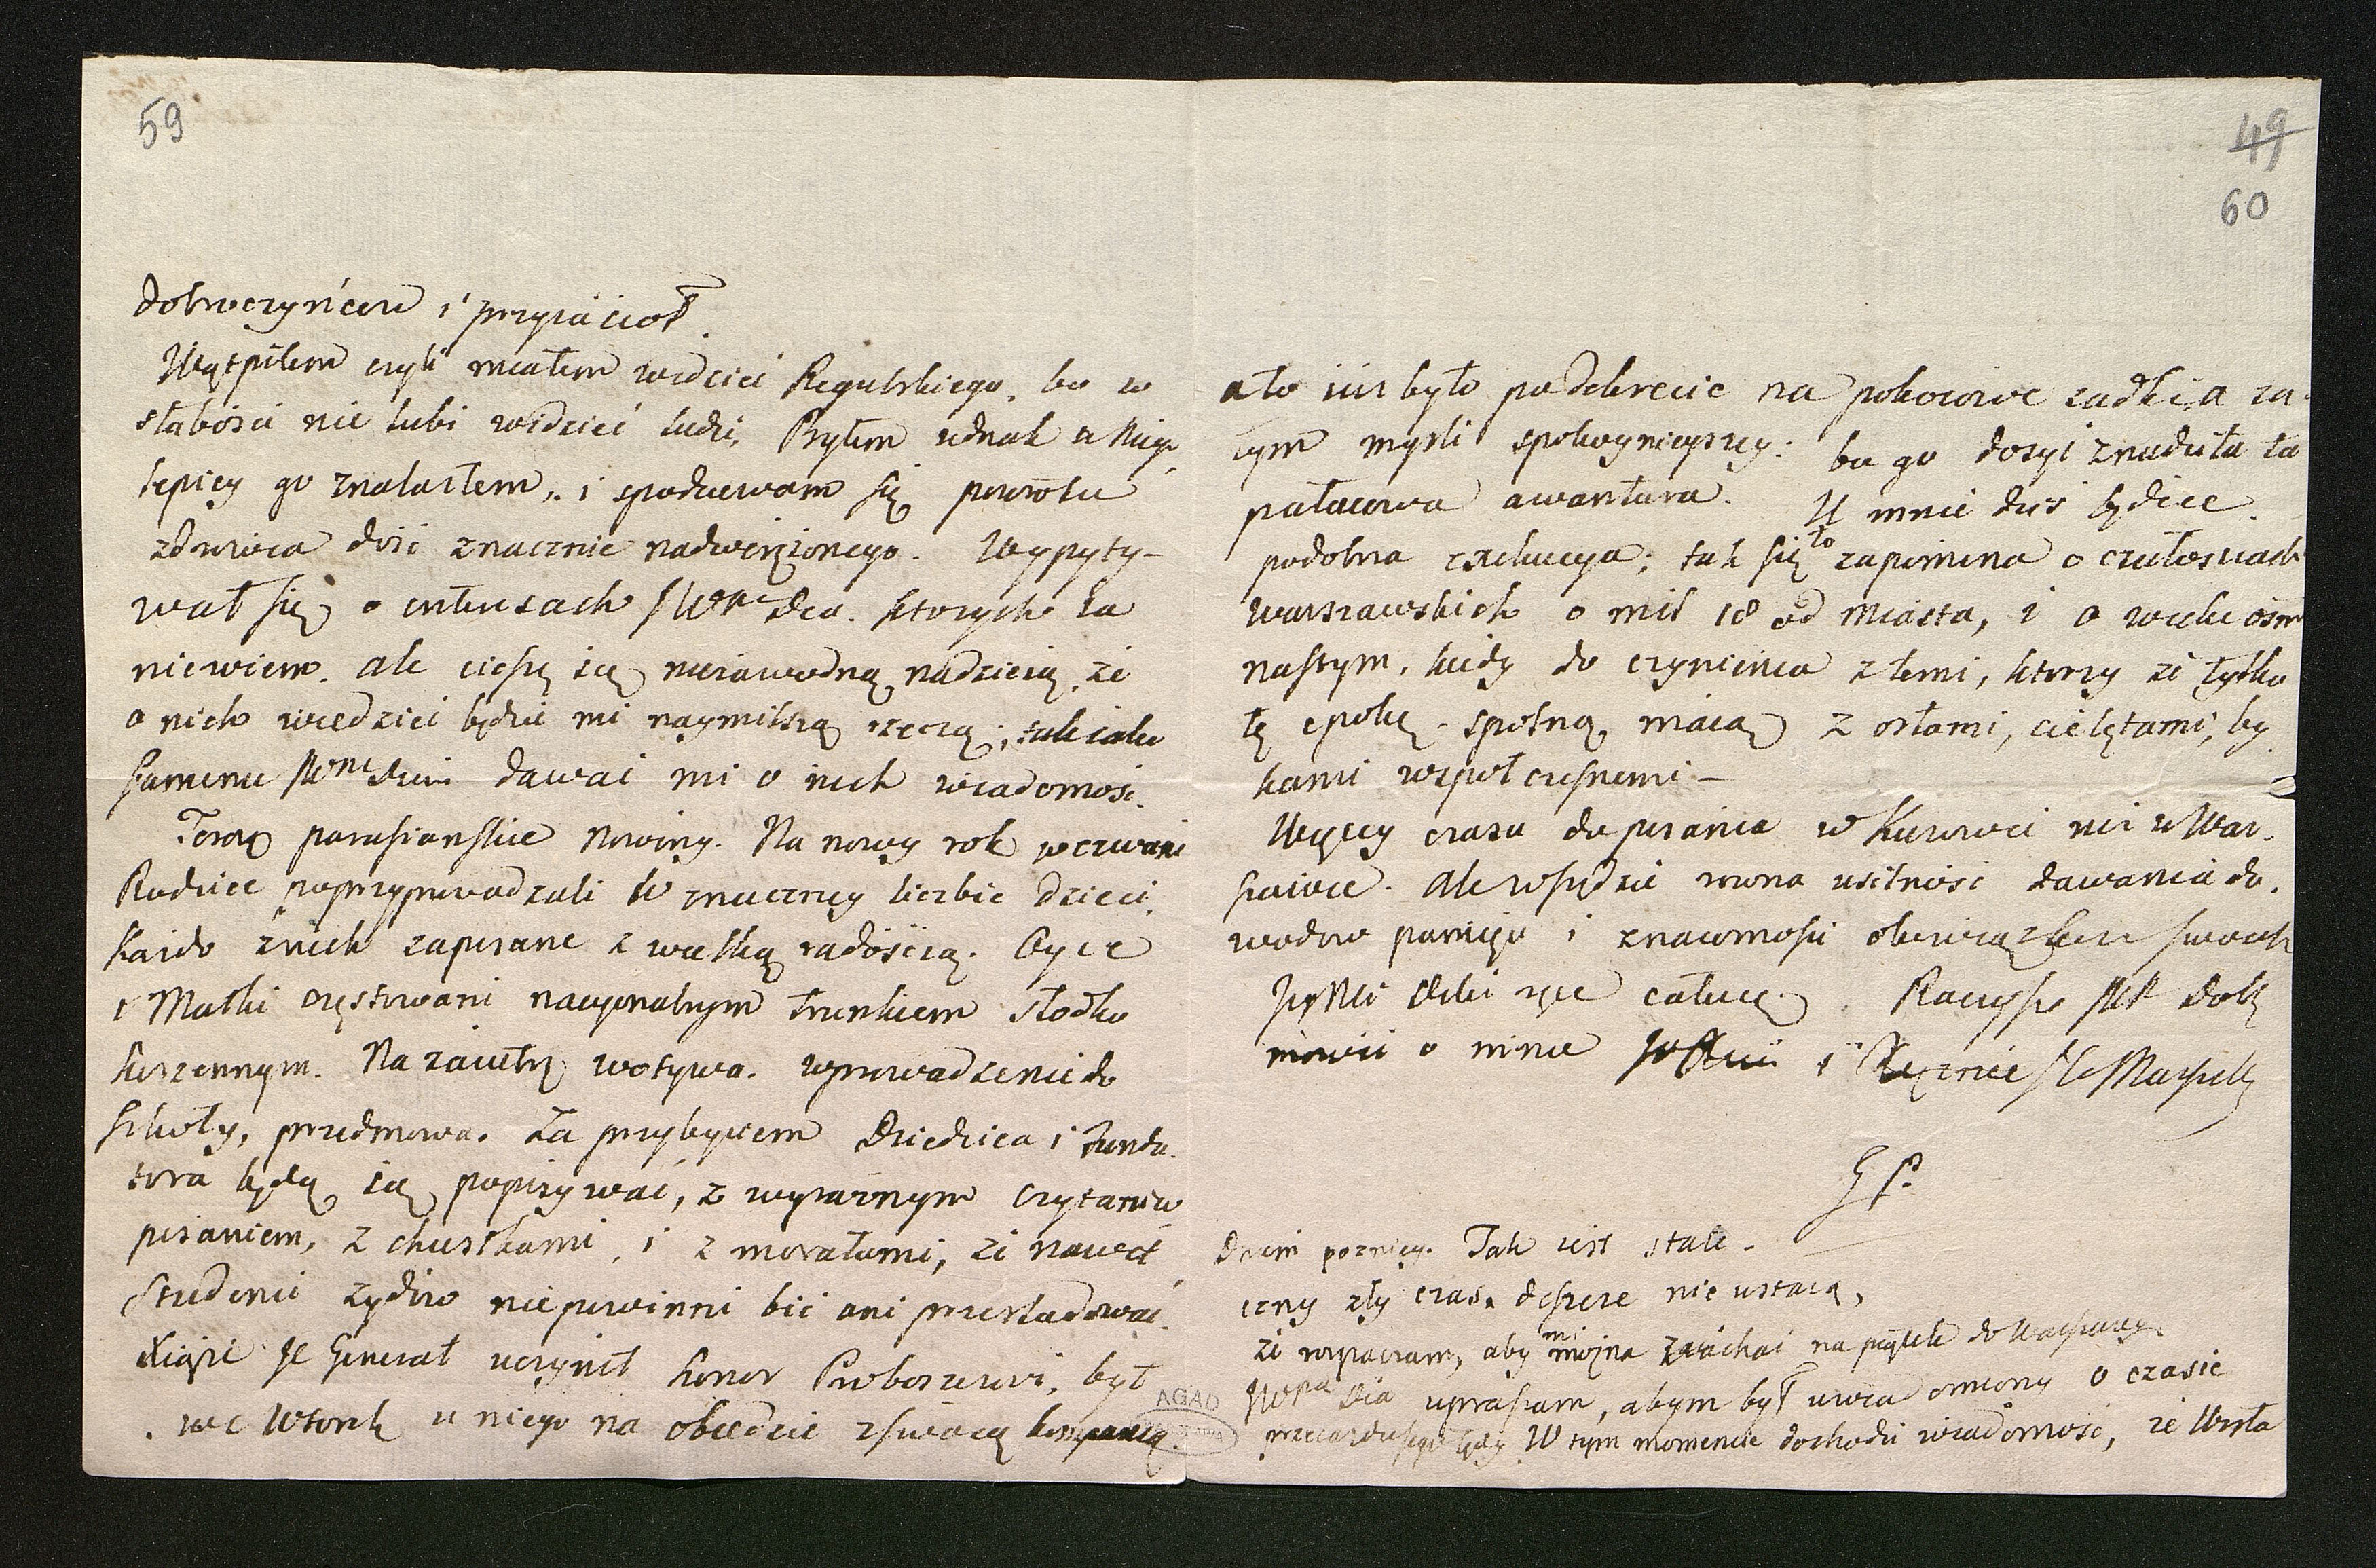 59
Dobroczyńcou i przyiacioł.
Wątpiłem czyli miałem widzieć Regulskiego, bo w
słabości nie lubi widzieć ludzi, Byłem iednak u niego
lepiey go znalazłem, i spodziewam się powrotu
zdrowia dość znacznie nadwerężonego. Wypyty-
wał się o interesach których ia
niewiem. ale cieszę się niezawodną nadzieią, że
o nich wiedzieć będzie mi naymilszą rzeczą; tak iako
samemu dawać mi o nich wiadomość.
Teraz parafianskie nowiny. Na nowy rok wezwani
Rodzice poprzyprowadzali w znaczney liczbie dzieci,
każde z nich zapisane z wielką radością. Oyce
i Matki częstowani nacyonalnym trunkiem słodko
korzennym. Na zaiutrz wotywa. wprowadzenie do
szkoły, przedmowa. Za przybyciem Dziedzica i Funda-
tora będą się popisywać, z wyraznym czytaniem
pisaniem, z chustkami, i z morałami, że nawet
Studenci zydów niepowinni bić ani prześladować.
Xiąże Je Generał uczynił honor Proboszczowi, był
we Wtorek u niego na obiedzie z swoią kompanią.
49
60
a to iuż było po dekrecie na pokoiowe zadki, a za-
tym mysli spokoynieyszey: bo go dosyć znudziła ta
pałacowa awantura. U mnie dziś będzie
podobna exekucya; tak się to zapomina o czułosciach
warszawskich o mil 18 od miasta, i o wieku ośm
nastym, kiedy do czynienia z temi, ktorzy że tylko
tę epokę spolną maią z osłami, cielętami, by-
kami wspołczesnemi –
Więcey czasu do pisania w Kurowie niż w War-
szawie. Ale wszędzie rowna usilność dawania do-
wodow pamięci i znaiomości obowiązkow swoich
ręce całuię. Raczysz
mowić o mnie i
G P.
Dniem pozniey. Tak iest stale.
czny zły czas, deszcze nie ustaią,
że rozpaczam, aby mi można zaiechać na piątek do Warszawy
upraszam, abym był uwiadomiony o czasie
W tym momencie dochodzi wiadomość, że Wisła
AGAD